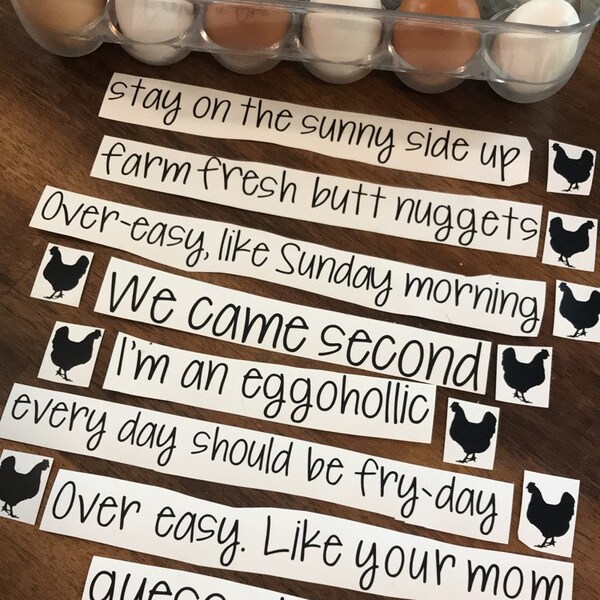 stay on the sunny side up
farm fresh butt nuggets
Over-easy, like Sunday morning
We came second
I'm an eggohollic
every day should be fry-day
Over easy. Like your mom